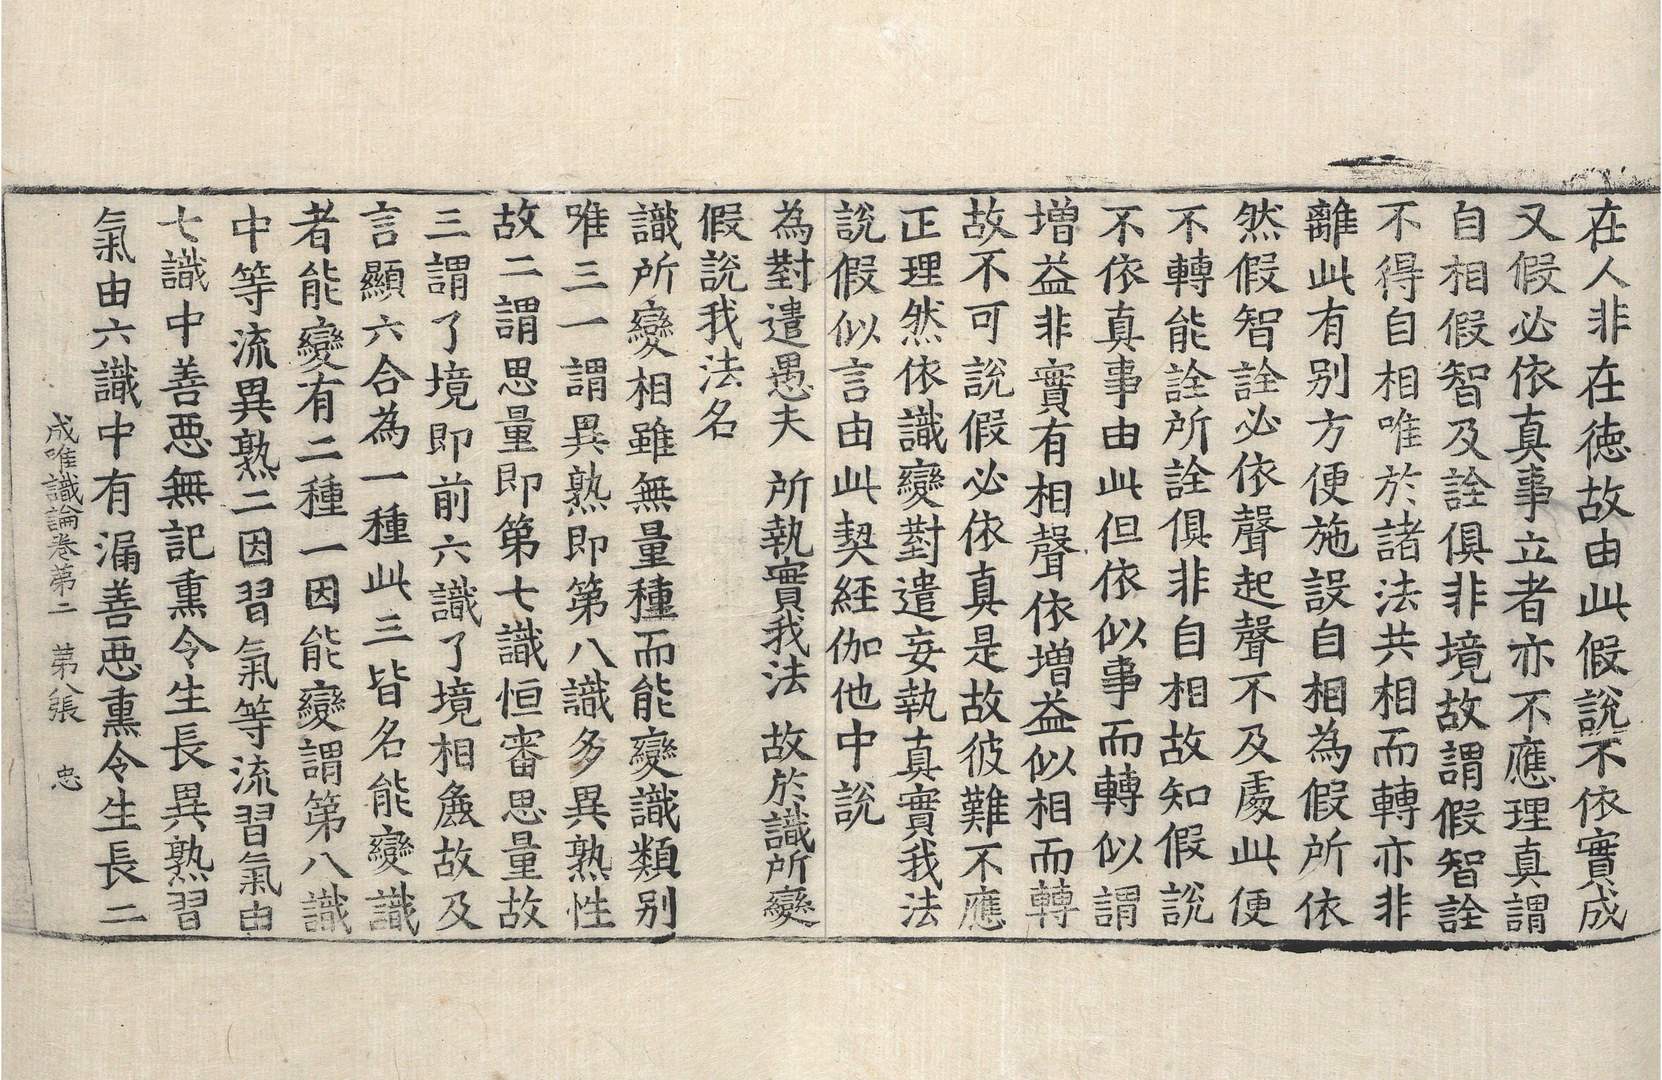 在人非在德故由此假說不依實成
又假必依真事立者亦不應理真謂
自相假智及詮俱非境故謂假智詮
不得自相唯於諸法共相而轉亦非
離此有别方便施設自相為假所依
然假智詮必依聲起聲不及處此便
不轉能詮所詮俱非自相故知假說
不依真事由此但依似事而轉似謂
增益非實有相聲依增益似相而轉
故不可說假必依真是故彼難不應
正理然依識變對遣妄執真實我法
說假似言由此契經伽他中說
為對遣愚夫 所執實我法 故於識所變
假說我法名
識所變相雖無量種而能變識類别
唯三一謂異熟即第八識多異熟性
故二謂思量即第七識恒審思量故
三謂了境即前六識了境相麁故及
言顯六合為一種此三皆名能變識
者能變有二種一因能變謂第八識
中等流異熟二因習氣等流習氣由
七識中善惡無記熏令生長異熟習
氣由六識中有漏善惡熏令生長二
成唯識論卷第二 第八張 忠